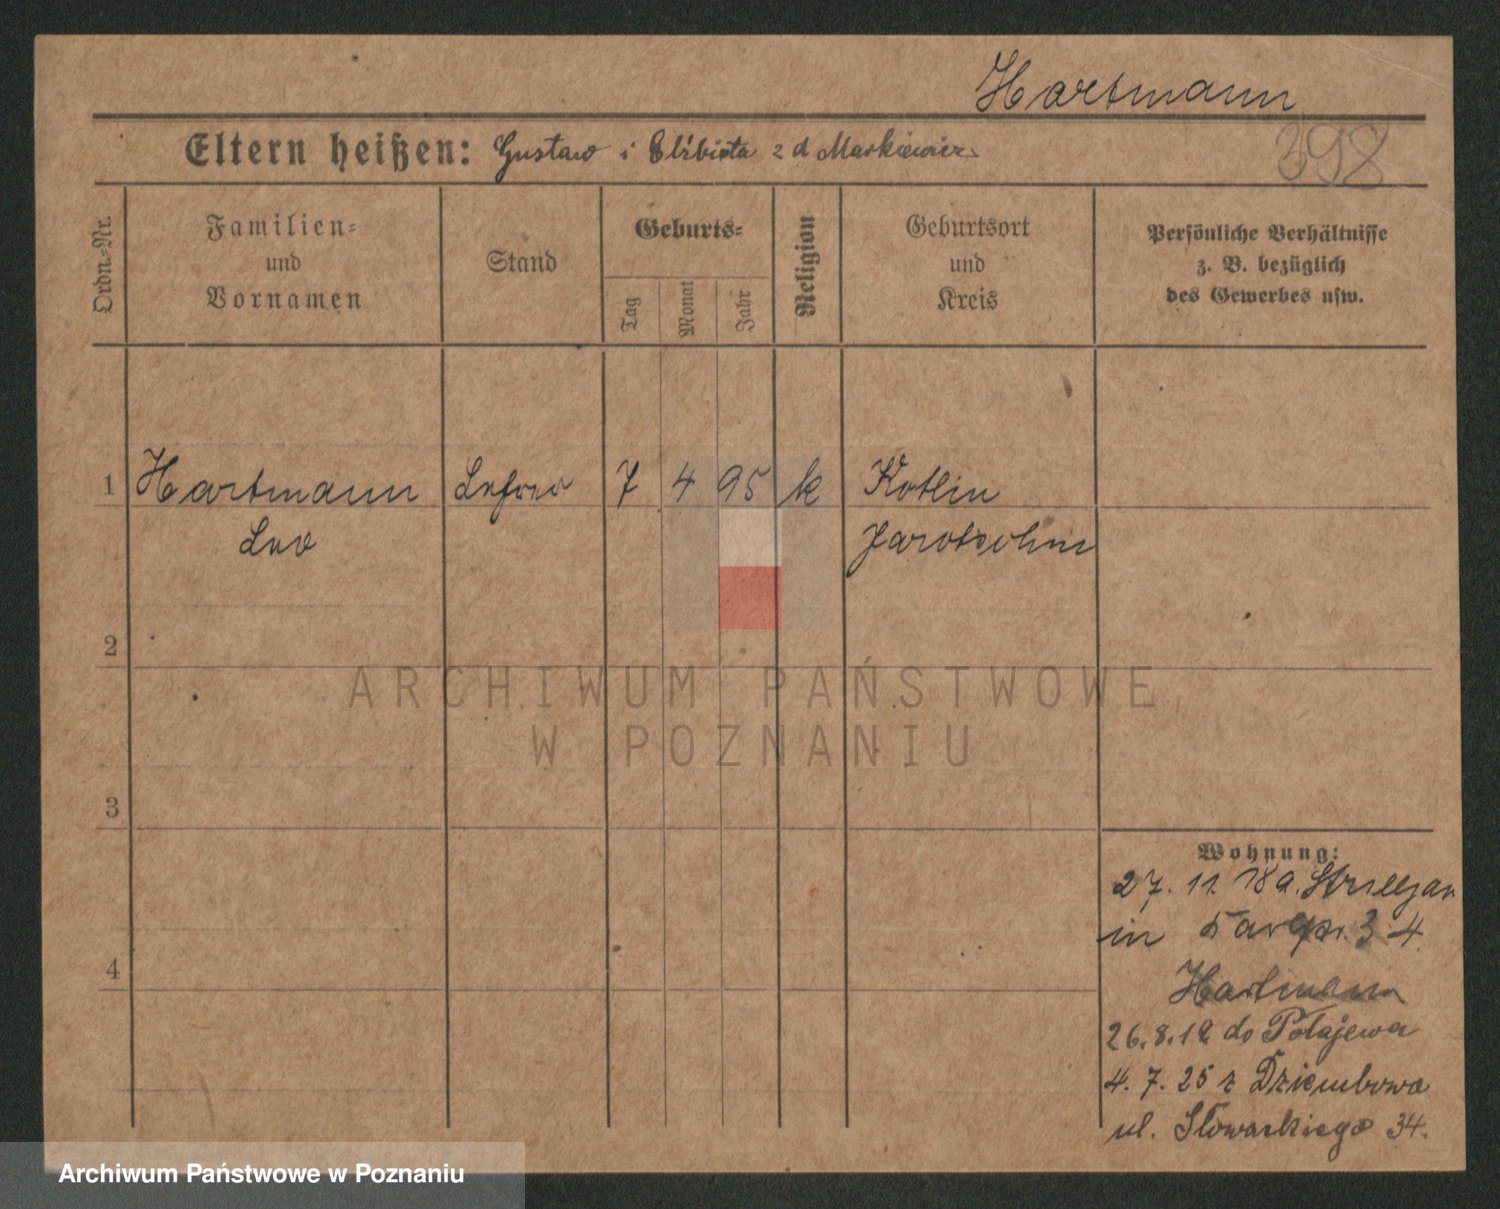 Hartmann
398
Eltern heißen: Gustaw i Elżbieta z d Markiewicz
Ordn.-Nr.
Familien-
und
Vornamen
Stand
Geburts-
Tag
Monat
Jahr
Religion
Geburtsort
und
Kreis
Persönliche Verhältnisse
z. B. bezüglich
des Gewerbes usw.
1 Hartmann Lehrer 7 4 95 k Kotlin
Leo Jarotschin
2
ARCHIWUM PAŃSTWOWE
W POZNANIU
3
Wohnung:
27. 11. 18 a.
in 3 4
4
Hartmann
26. 8. 19 do Połajewa
4. 7. 25 z Dziembowa
ul. Słowackiego 34.
Archiwum Państwowe w Poznaniu